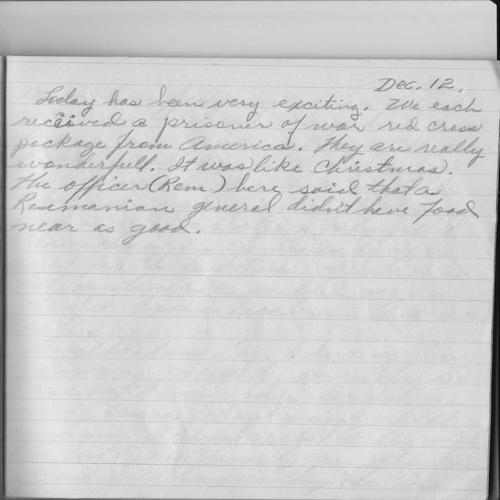 Dec. 12.
Today has been very exciting. We each
received a prisoner of war red cross
package from America. They are really
wonderfull. It was like Christmas.
The officer (Rom.) here, said that a
Roumanian general didn't have food
near as good.